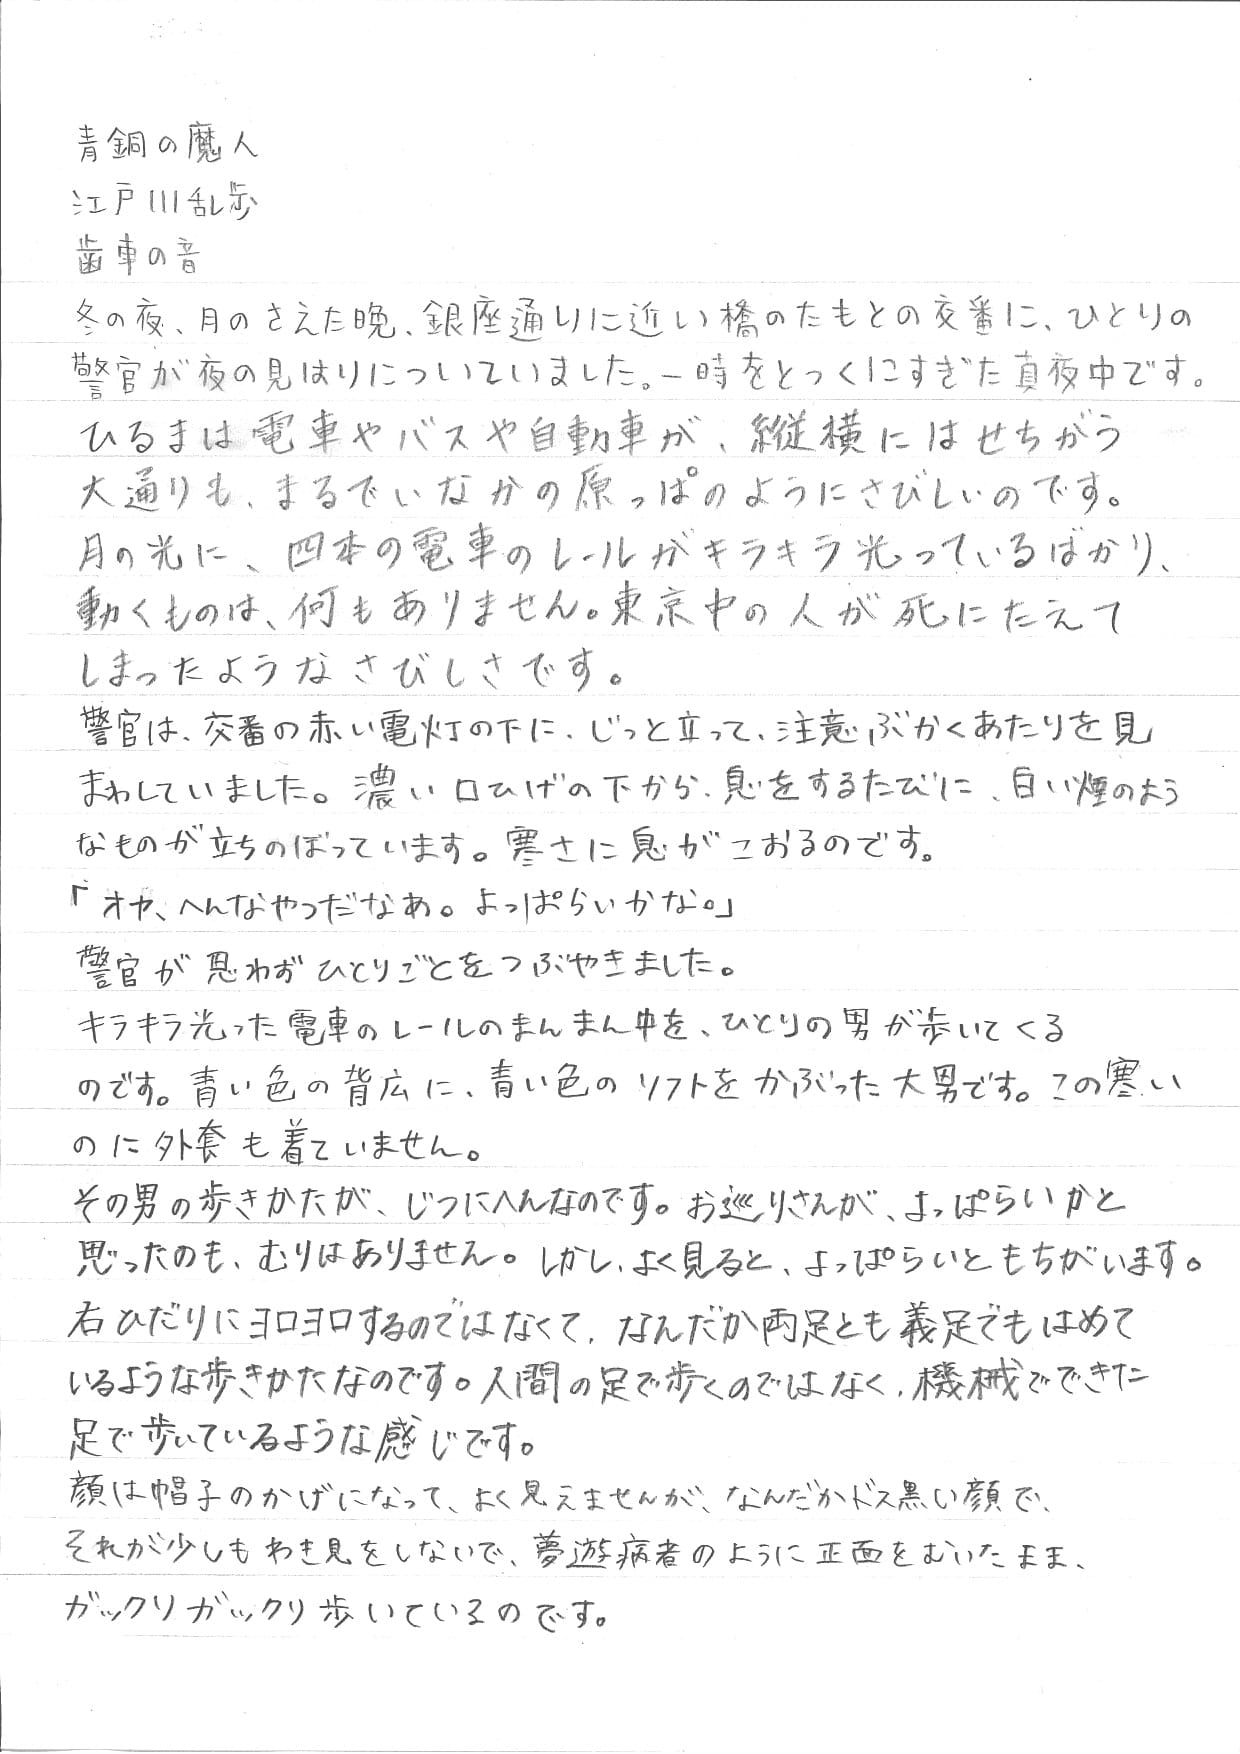 青銅の魔人
江戸川乱歩
歯車の音
冬の夜、月のさえた晩、銀座通りに近い橋のたもとの交番に、ひとりの
警官が夜の見はりについていました。一時をとっくにすぎた真夜中です。
ひるまは電車やバスや自動車が、縦横にはせちがう
大通りも、まるでいなかの原っぱのようにさびしいのです。
月の光に、四本の電車のレールがキラキラ光っているばかり、
動くものは、何もありません。東京中の人が死にたえて
しまったようなさびしさです。
警官は、交番の赤い電灯の下に、じっと立って、注意ぶかくあたりを見
まわしていました。濃い口ひげの下から、息をするたびに、白い煙のよう
なものが立ちのぼっています。寒さに息がこおるのです。
「オヤ、へんなやつだなあ。よっぱらいかな。」
警官が思わずひとりごとをつぶやきました。
キラキラ光った電車のレールのまんまん中を、ひとりの男が歩いてくる
のです。青い色の背広に、青い色のソフトをかぶった大男です。この寒い
のに外套も着ていません。
その男の歩きかたが、じつにへんなのです。お巡りさんが、よっぱらいかと
思ったのも、むりはありません。しかし、よく見ると、よっぱらいともちがいます。
右ひだりにヨロヨロするのではなくて、なんだか両足とも義足でもはめて
いるような歩きかたなのです。人間の足で歩くのではなく、機械でできた
足で歩いているような感じです。
顔は帽子のかげになって、よく見えませんが、なんだかドス黒い顔で、
それが少しもわき見をしないで、夢遊病者のように正面をむいたまま、
ガックリガックリ歩いているのです。